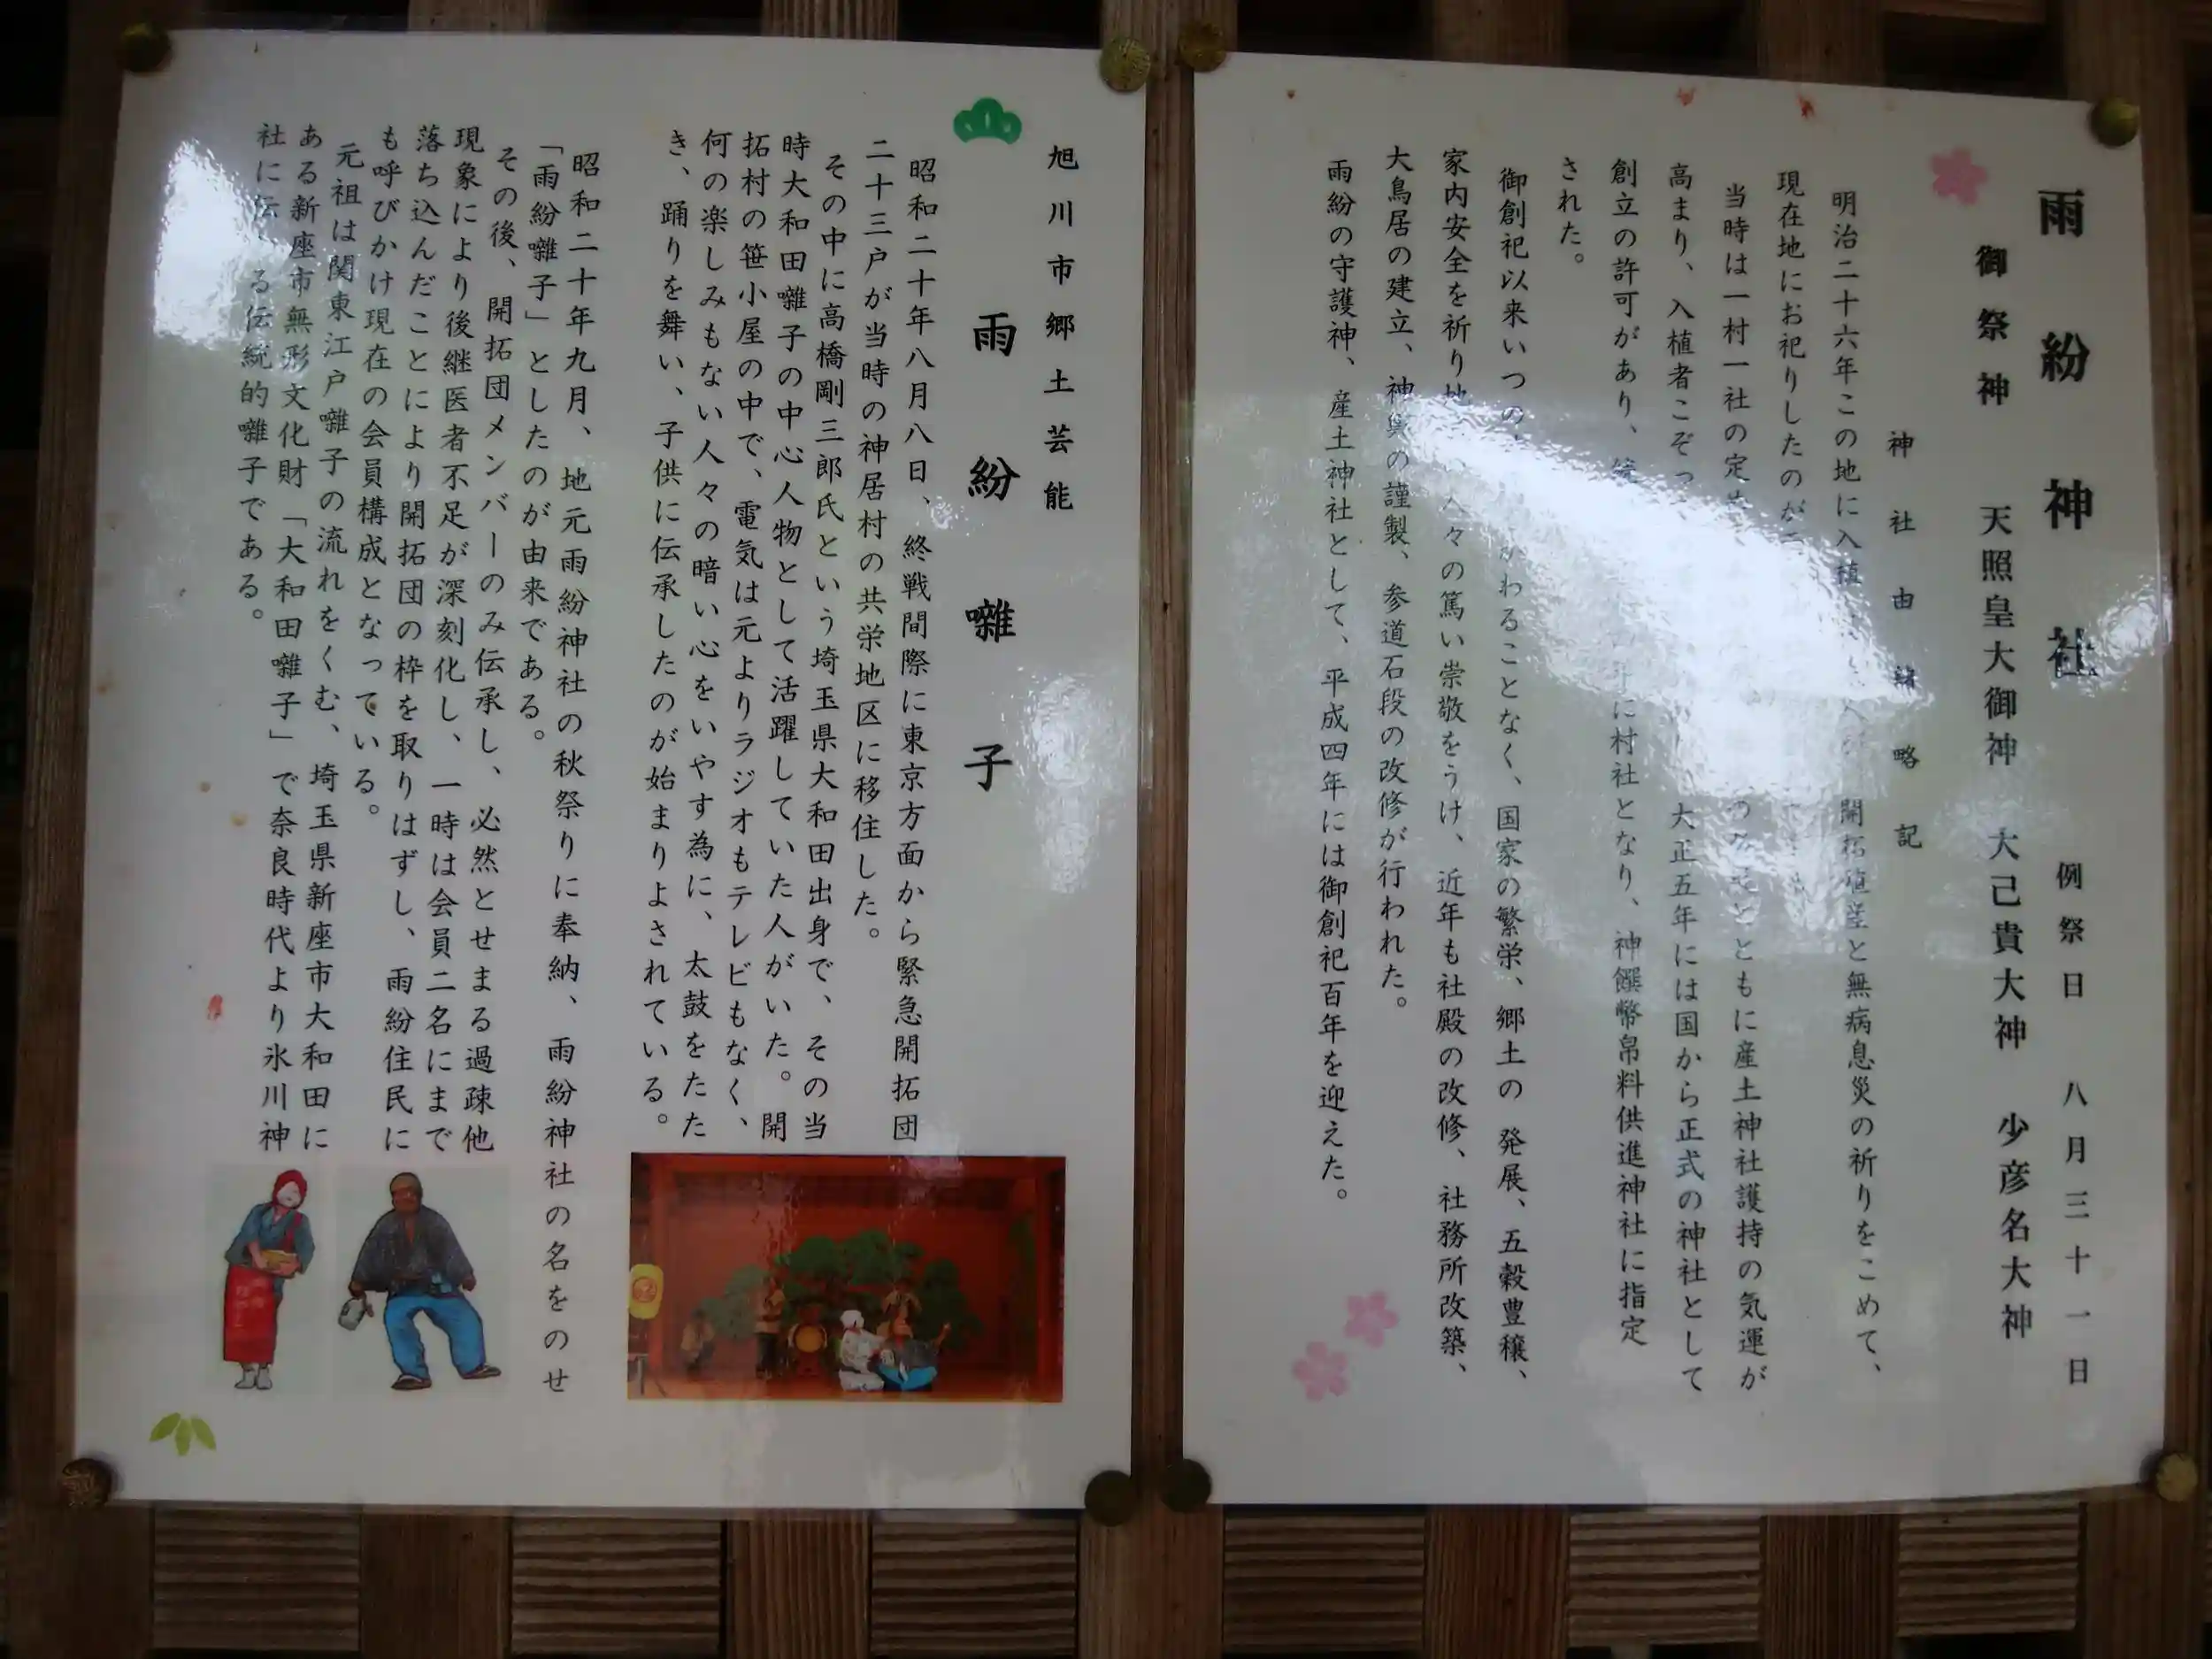 雨紛神社
例祭日 八月三十一日
御祭神 天照皇大御神 大己貴大神 少彦名大神
神社由緒略記
明治二十六年この地に入植 開拓殖産と無病息災の祈りをこめて、
現在地にお祀りしたのが
当時は一村一社の定 とともに産土神社護持の気運が
高まり、入植者こぞっ 大正五年には国から正式の神社として
創立の許可があり、 に村社となり、神饌幣帛料供進神社に指定
された。
御創祀以来いつの わることなく、国家の繁栄、郷土の発展、五穀豊穣、
家内安全を祈り地 人々の篤い崇敬をうけ、近年も社殿の改修、社務所改築、
大鳥居の建立、神輿の謹製、参道石段の改修が行われた。
雨紛の守護神、産土神社として、平成四年には御創祀百年を迎えた。
旭川市郷土芸能
雨紛囃子
昭和二十年八月八日、終戦間際に東京方面から緊急開拓団
二十三戸が当時の神居村の共栄地区に移住した。
その中に高橋剛三郎氏という埼玉県大和田出身で、その当
時大和田囃子の中心人物として活躍していた人がいた。開
拓村の笹小屋の中で、電気は元よりラジオもテレビもなく、
何の楽しみもない人々の暗い心をいやす為に、太鼓をたた
き、踊りを舞い、子供に伝承したのが始まりよされている。
昭和二十年九月、地元雨紛神社の秋祭りに奉納、雨紛神社の名をのせ
「雨紛囃子」としたのが由来である。
その後、開拓団メンバーのみ伝承し、必然とせまる過疎他
現象により後継医者不足が深刻化し、一時は会員二名にまで
落ち込んだことにより開拓団の枠を取りはずし、雨紛住民に
も呼びかけ現在の会員構成となっている。
元祖は関東江戸囃子の流れをくむ、埼玉県新座市大和田に
ある新座市無形文化財「大和田囃子」で奈良時代より氷川神
社に伝 る伝統的囃子である。